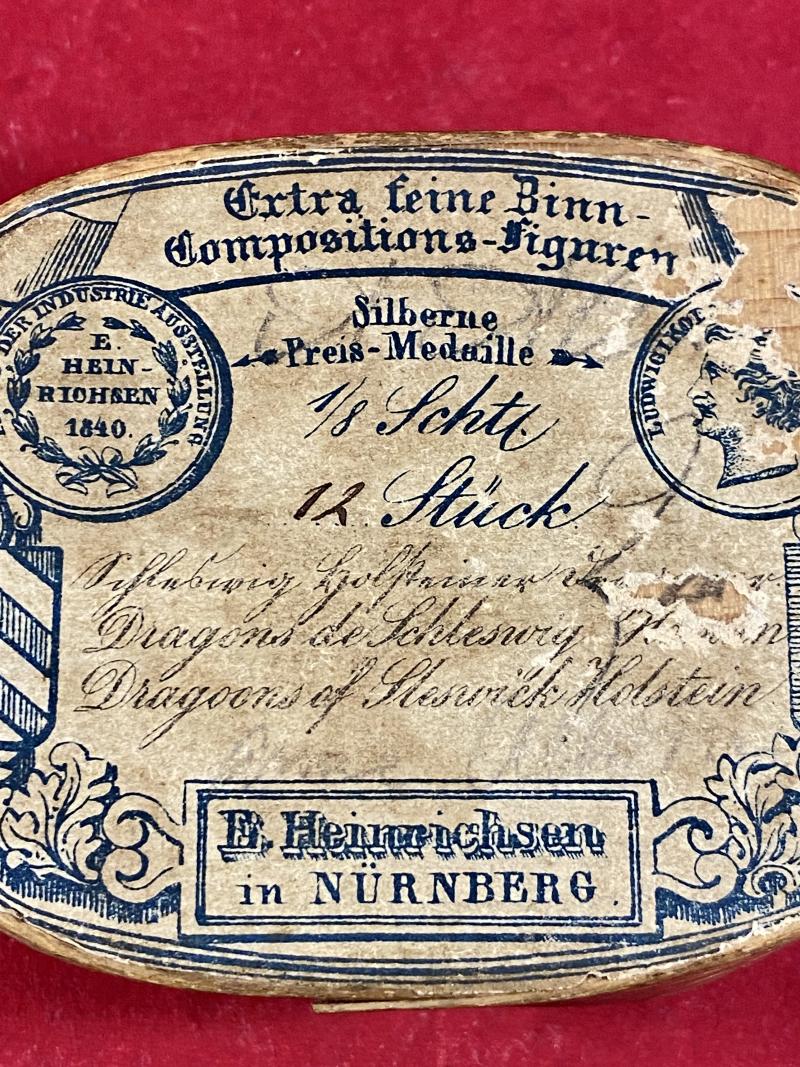 Extra feine Zinn-
Compositions-Figuren
DER INDUSTRIE AUSSTELLUNG
E.
HEIN-
RICHSEN
1840.
Silberne
Preis-Medaille
LUDWIG I KOE
1/8 Schtl.
12 Stück
Schleswig Holsteiner
Dragons de Schleswig
Dragoons of Sleswick Holstein
E. Heinrichsen
in NÜRNBERG.